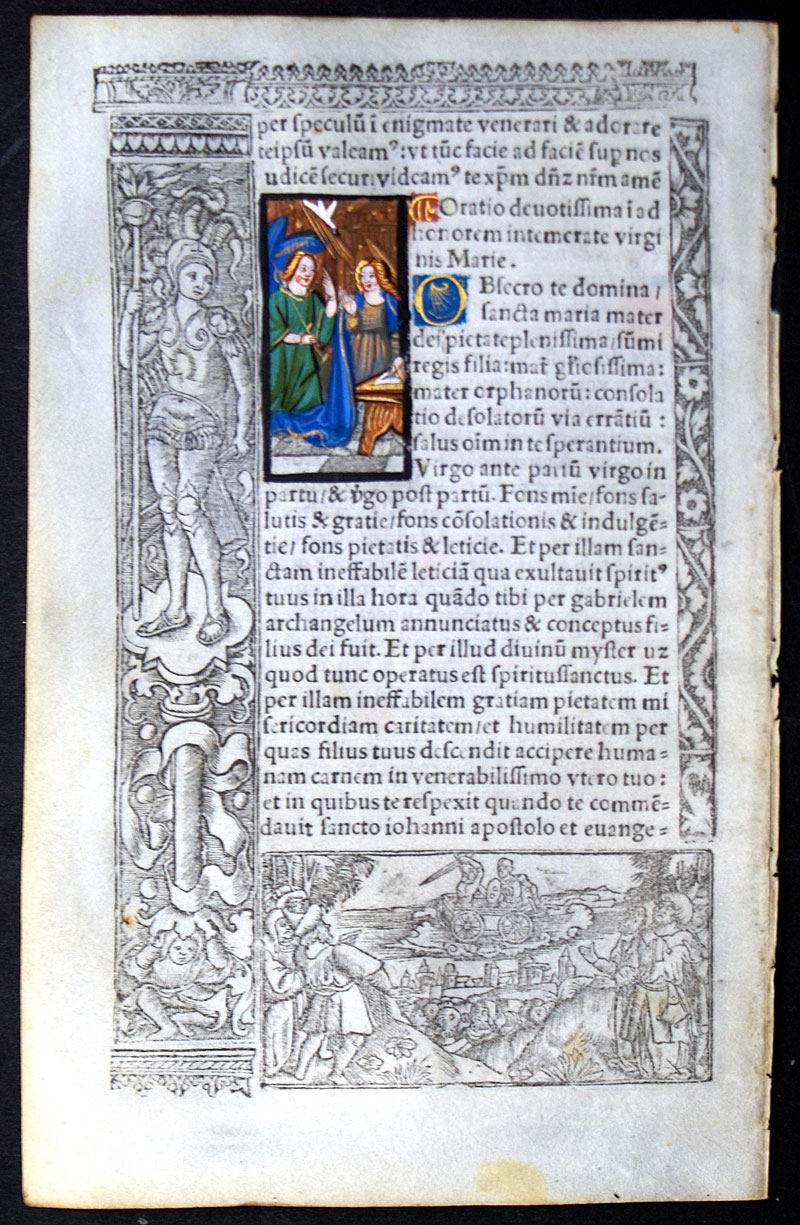 per speculū ī enigmate venerari & adorare
teipsū valeamꝰ: vt tūc facie ad faciē sup nos
udicē securi videamꝰ te xp̄m dn̄z nr̄m amē
Oratio deuotissima ī ad
honorem intemerate virgi
nis Marie.
OBsecro te domina/
sancta maria mater
dei pietate plenissima/sūmi
regis filia: mat̄ gl̄iosissima:
mater orphanorū: consola
tio desolatorū via errātiū:
salus oīm in te sperantium.
Virgo ante partū virgo in
partu/& v̄go post partū. Fons mīe/fons sa-
lutis & gratie/fons cōsolationis & indulgē=
tie/ fons pietatis & leticie. Et per illam san=
ctam ineffabilē leticiā qua exultauit spiritꝰ
tuus in illa hora quādo tibi per gabrielem
archangelum annunciatus & conceptus fi=
lius dei fuit. Et per illud diuinū myster uz
quod tunc operatus est spiritussanctus. Et
per illam ineffabilem gratiam pietatem mi
sericordiam caritatem/et humilitatem per
quas filius tuus descendit accipere huma=
nam carnem in venerabilissimo vtero tuo:
et in quibus te respexit quando te commē=
dauit sancto iohanni apostolo et euange=